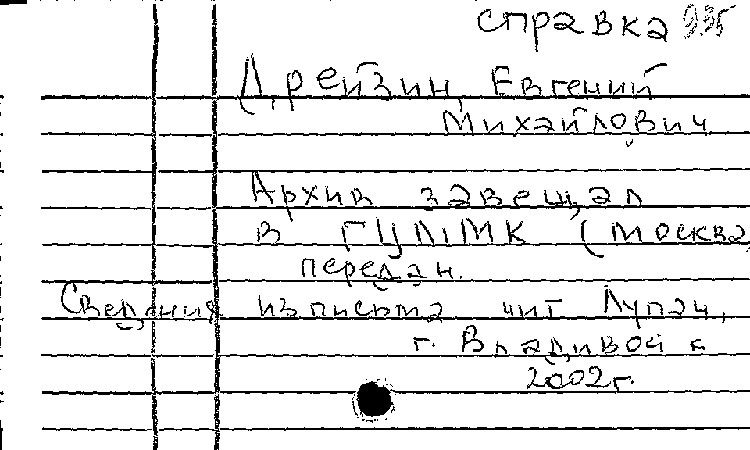 справка
Дрейзин, Евгений
Михайлович
Архив завещал
в ГЦММК (Москва,
передан.
Сведения из письма чит. Лупач,
г. Владивок
2002 г.